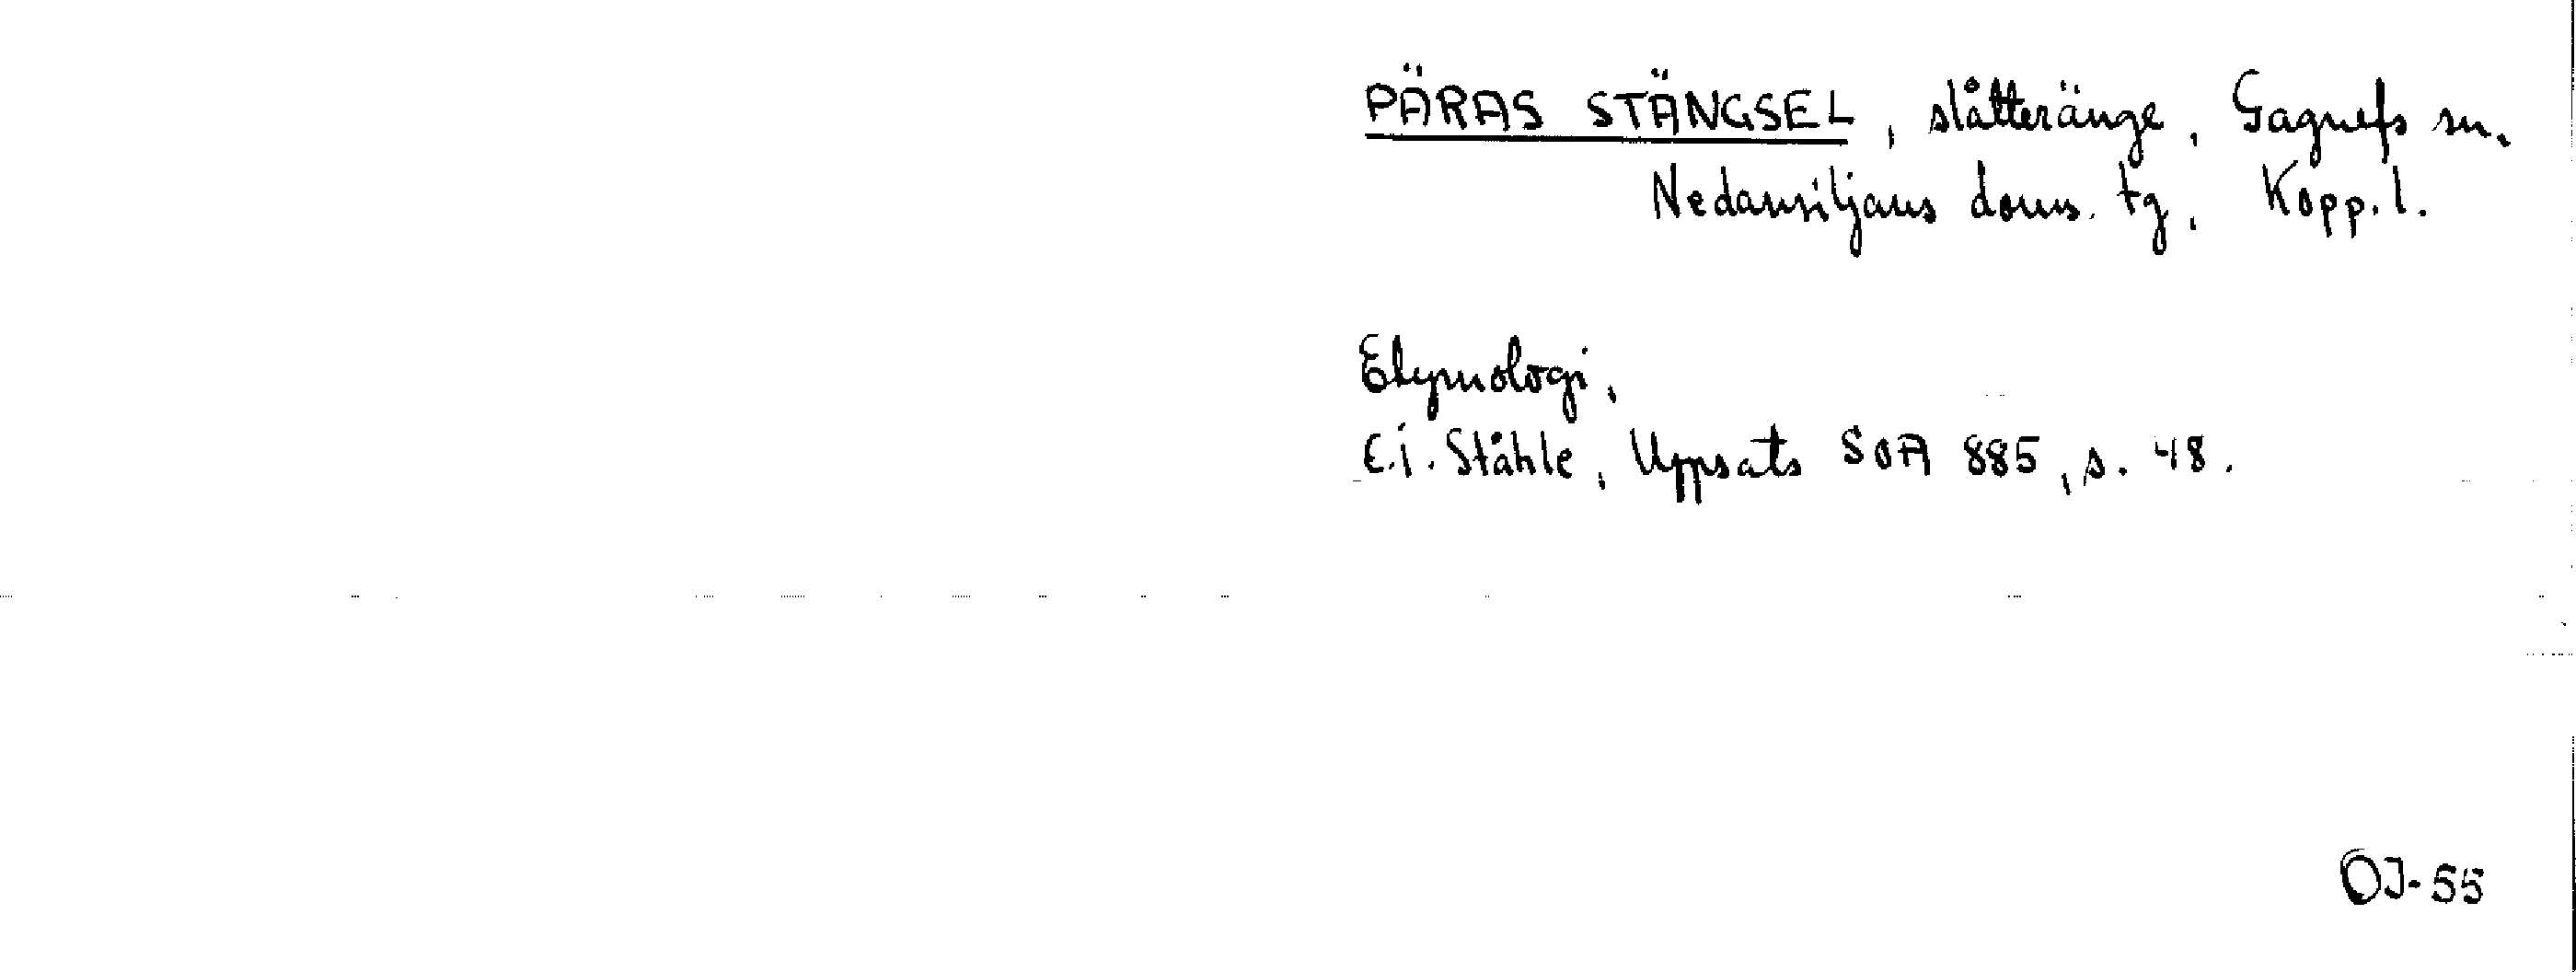 PÄRAS STÄNGSEL, slåtteränge, Gagnefs sn.
Nedansiljans doms. tg, Kopp. l.
Etymologi,
E.I. Ståhle, Uppsats SOA 885, s. 48.
OJ-55